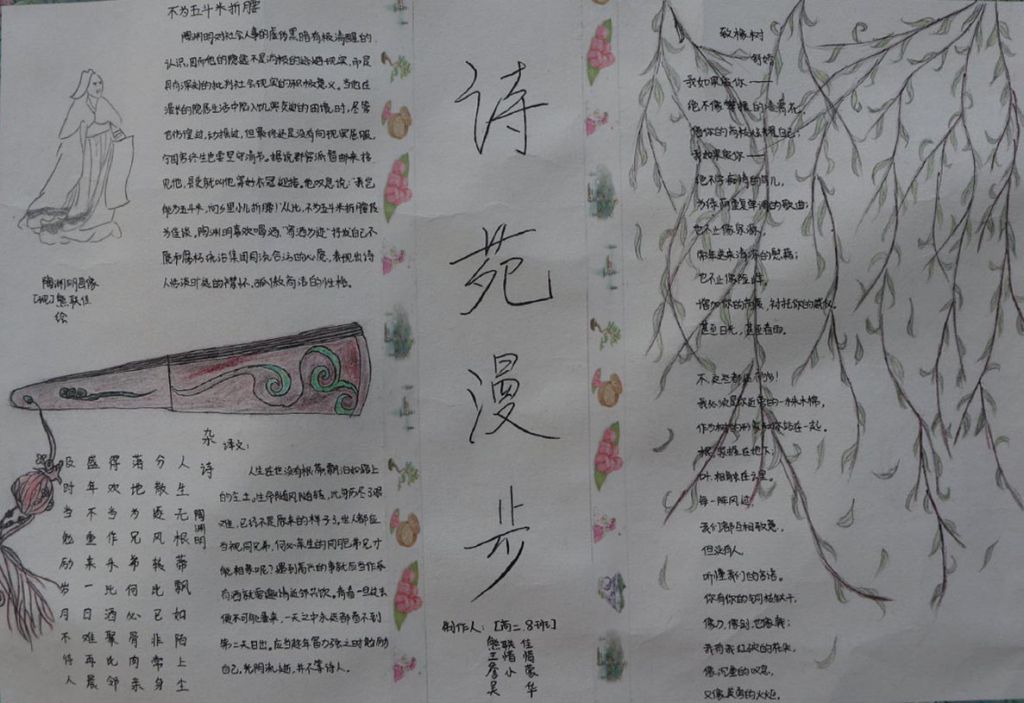 不为五斗米折腰
陶渊明对社会人事的虚伪黑暗有极清醒的
认识,因而他的隐逸不是消极的逃避现实,而是
具有深刻的批判社会现实的积极意义。当他在
漫长的隐居生活中陷入饥寒交迫的困境时,尽管
也彷徨过,动摇过,但最终还是没有向现实屈服,
宁固穷终生也要坚守清节。据说郡官派督邮来接
见他,县吏就叫他穿好衣冠迎接。他叹息说:“我岂
能为五斗米,向乡里小儿折腰!”从此,不为五斗米折腰传
为佳谈,陶渊明喜欢喝酒,“寄酒为迹”抒发自己不
愿和腐朽统治集团同流合污的心愿,表现出诗
人恬淡旷远的襟怀、孤傲高洁的性格。
陶渊明画像
熊联佳
绘
杂诗
陶渊明
人生无根蒂飘如陌上尘
分散逐风转此已非常身
落地为兄弟何必骨肉亲
得欢当作乐斗酒聚比邻
盛年不重来一日难再晨
及时当勉励岁月不待人
译文:
人生在世没有根蒂,飘泊如路上
的尘土。生命随风飘转,此身历尽了艰
难,已经不是原来的样子了。世人都应
当视同兄弟,何必亲生的同胞弟兄才
能相亲呢?遇到高兴的事就应当作乐,
有酒就要邀请近邻共饮。青春一旦过去
便不可能重来,一天之中永远都看不到
第二次日出。应当趁年富力强之时勉励
自己,光阴流逝,并不等待人。
诗苑漫步
制作人:【高二.8班】
熊联佳
王惜惜
詹小蒙
吴华
致橡树
——舒婷
我如果爱你——
绝不像攀援的凌霄花,
借你的高枝炫耀自己;
我如果爱你——
绝不学痴情的鸟儿,
为绿荫重复单调的歌曲;
也不止像泉源,
常年送来清凉的慰藉;
也不止像险峰,
增加你的高度,衬托你的威仪。
甚至日光,甚至春雨。
不,这些都还不够!
我必须是你近旁的一株木棉,
作为树的形象和你站在一起。
根,紧握在地下;
叶,相触在云里。
每一阵风过,
我们都互相致意,
但没有人,
听懂我们的言语。
你有你的铜枝铁干,
像刀,像剑,也像戟;
我有我红硕的花朵,
像沉重的叹息,
又像英勇的火炬。